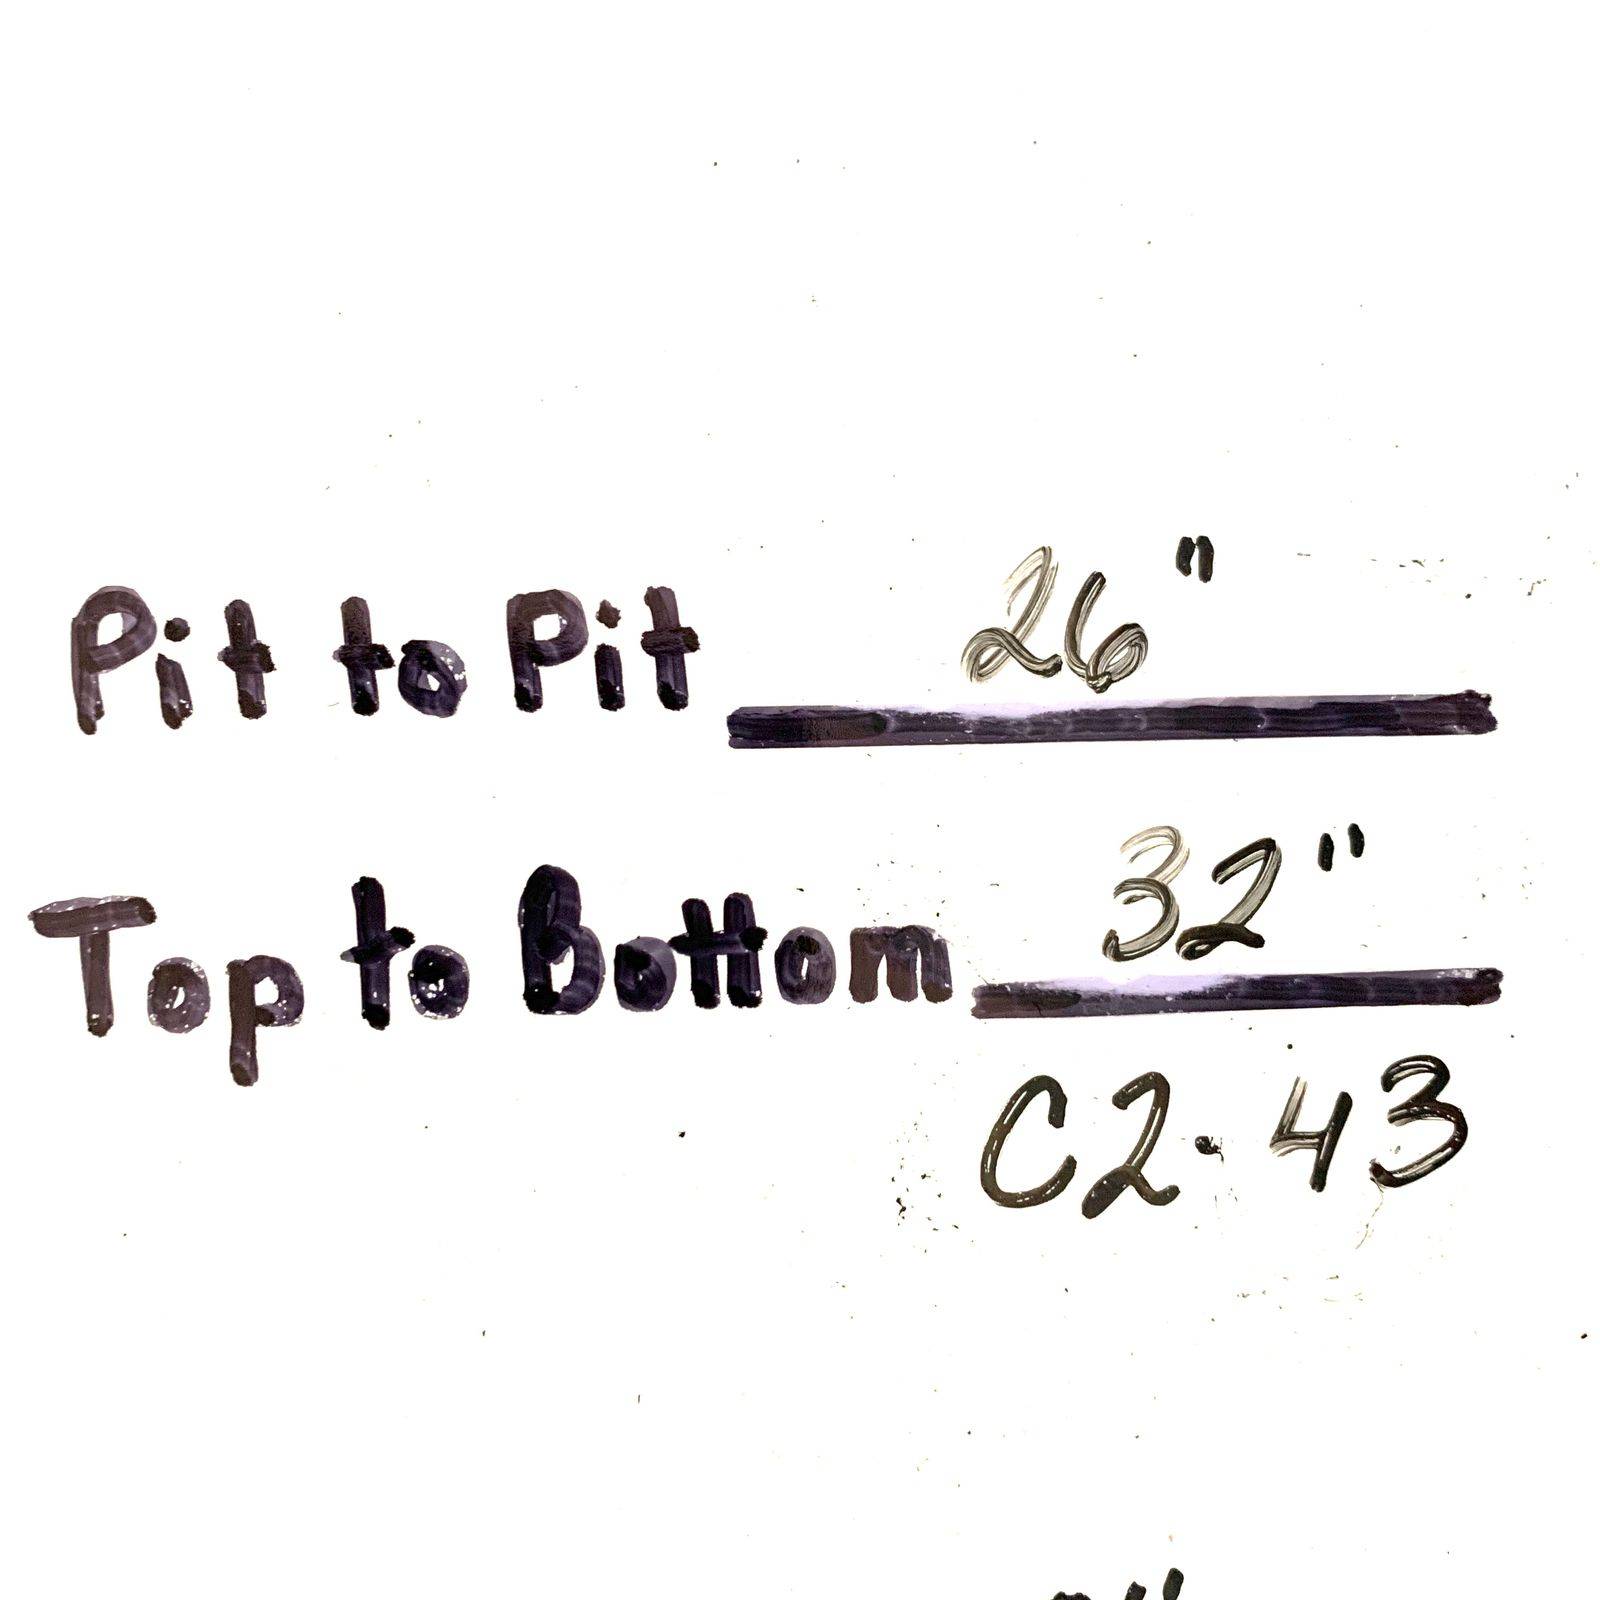 Pit to Pit 26"
Top to Bottom 32"
C2. 43